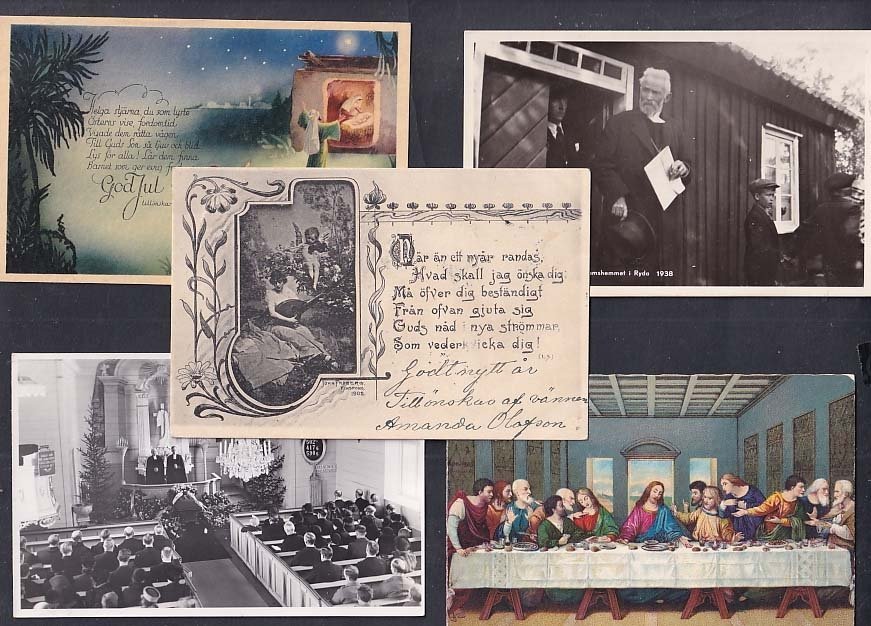 Helga stjärna, du som lyste
Österns vise, fordomtid
Visade dem rätta vägen
Till Guds son så ljuv och blid.
Lys för alla! Lär dem finna
Barnet som ger evig fr
God Jul
tillönskas
När än ett nyår randas,
Hvad skall jag önska dig:
Må öfver dig beständigt
Från ofvan gjuta sig
Guds nåd i nya strömmar,
Som vederkvicka dig!
Godt nytt år
Tillönskas af vännen
Amanda Olofson.
1905
emshemmet i Ryda 1938